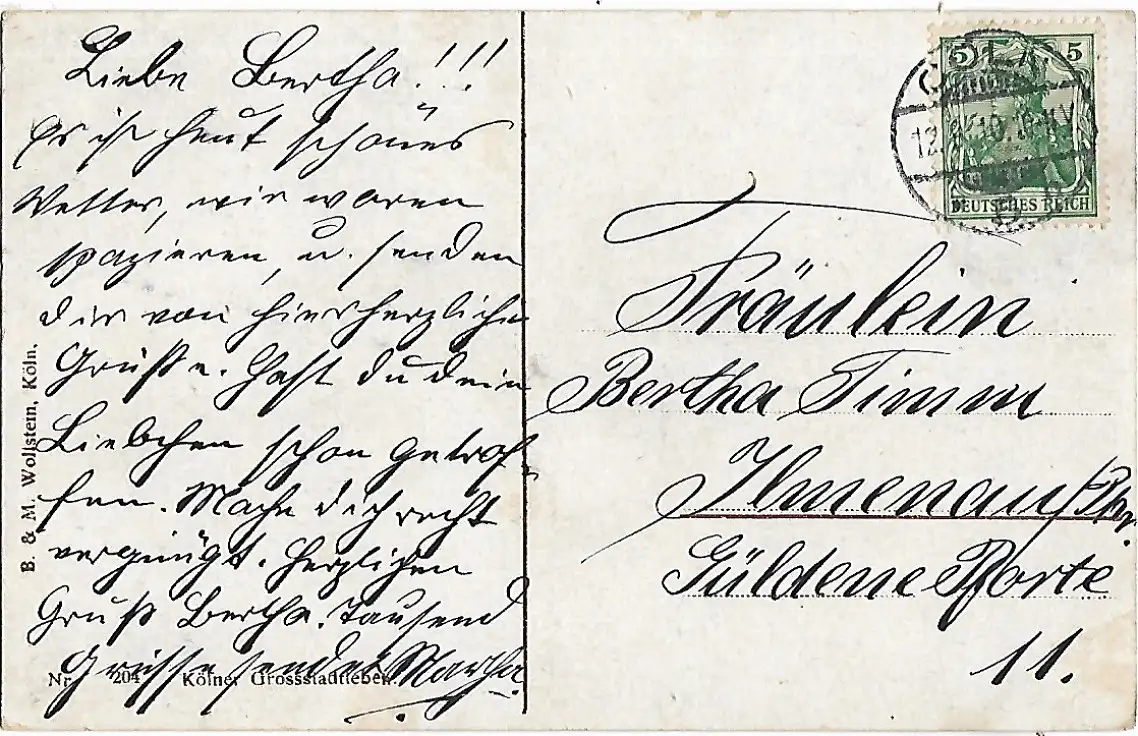 Liebe Bertha!!!
Es ist heut schönes
Wetter, wir waren
spazieren, u. senden
dir von hier herzliche
Grüße. Hast du dein
Liebchen schon getrof-
fen. Mache dich recht
vergnügt. Herzlichen
Gruß Bertha. Tausend
Grüsse sendet Martha.
Nr. 204 Kölner Grossstadtleben.
B. & M. Wollstein, Köln.
5 5
CÖLN
12. 10.
DEUTSCHES REICH
Fräulein
Bertha Timm
Ilmenau
Güldene Pforte
11.